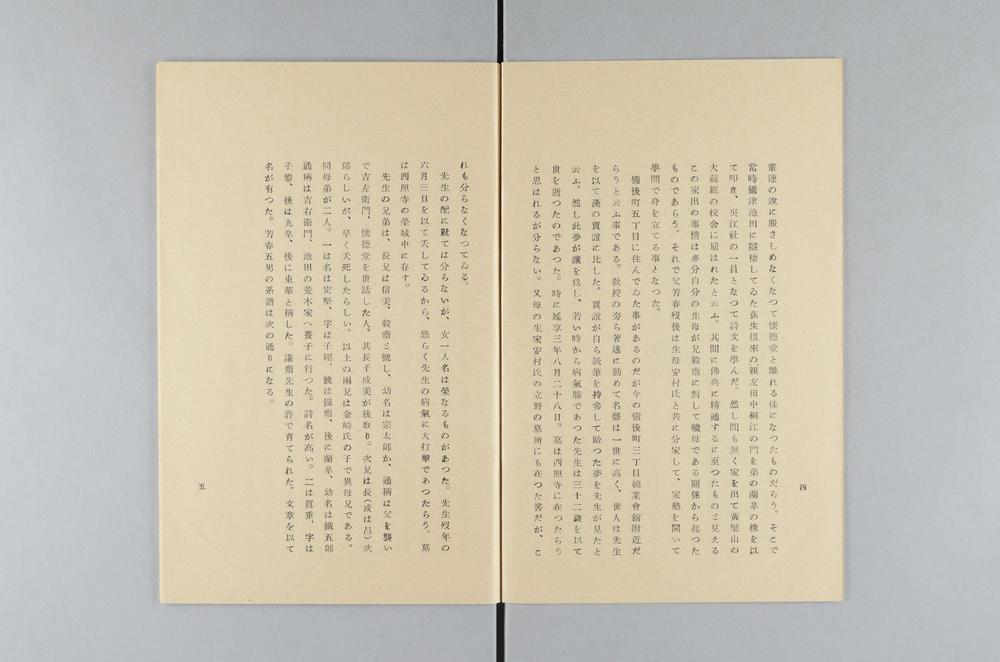 董連の說に服さしめなくなつて懷德堂と離れる樣になつたものだらう。そこで
當時攝津池田に隱棲してゐた荻生徂來の親友田中桐江の門を弟の蘭皐の緣を以
て叩き、吳江社の一員となつて詩文を學んだ。然し間も無く家を出て黃檗山の
大藏經の校合に雇はれたと云ふ。其間に佛典に精通するに至つたものと見える
この家出の事情は多分自分の生母が兄毅齋に對して繼母である關係から起つた
ものであらう。それで父芳春歿後は生母安村氏と共に分家して、家塾を開いて
學問で身を立てる事となつた。
備後町五丁目に住んでゐた事があるのだが今の備後町三丁目綿業會舘附近だ
らうと云ふ事である。敎授の旁ら著述に勤めて名聲は一世に高く、世人は先生
を以て漢の賈誼に比した。賈誼が自ら紙筆を持參して貽つた夢を先生が見たと
云ふ。然し此夢が讖を爲し、若い時から病氣勝であつた先生は三十二歲を以て
世を逝つたのであつた。時に延享三年八月二十八日。墓は西照寺に在つたらう
と思はれるが分らない。又母の生家安村氏の立野の墓所にも在つた筈だが、こ
四
れも分らなくなつてゐる。
先生の配に就ては分らないが、女一人名は榮なるものがあつた。先生歿年の
六月三日を以て夭してゐるから、恐らく先生の病氣に大打擊であつたらう。墓
は西照寺の塋域中に存す。
先生の兄弟は、長兄は信美、毅齋と號し、幼名は宗太郎か、通稱は父を襲い
で吉左衞門、懷德堂を世話した人。其長子成美が後取り。次兄は長(或は昌)次
郎らしいが、早く夭死したらしい。以上の兩兄は金崎氏の子で異母兄である。
同母弟が二人。一は名は定堅、字は子剛、號は鐵齋、後に蘭皐、幼名は鐵五郎
通稱は吉右衞門、池田の荒木家へ養子に行つた。詩名が高い。二は眞重、字は
子黎、後は九皐、後に東華と稱した。謙齋先生の許で育てられた。文章を以て
名が有つた。芳春五男の系譜は次の通りになる。
五